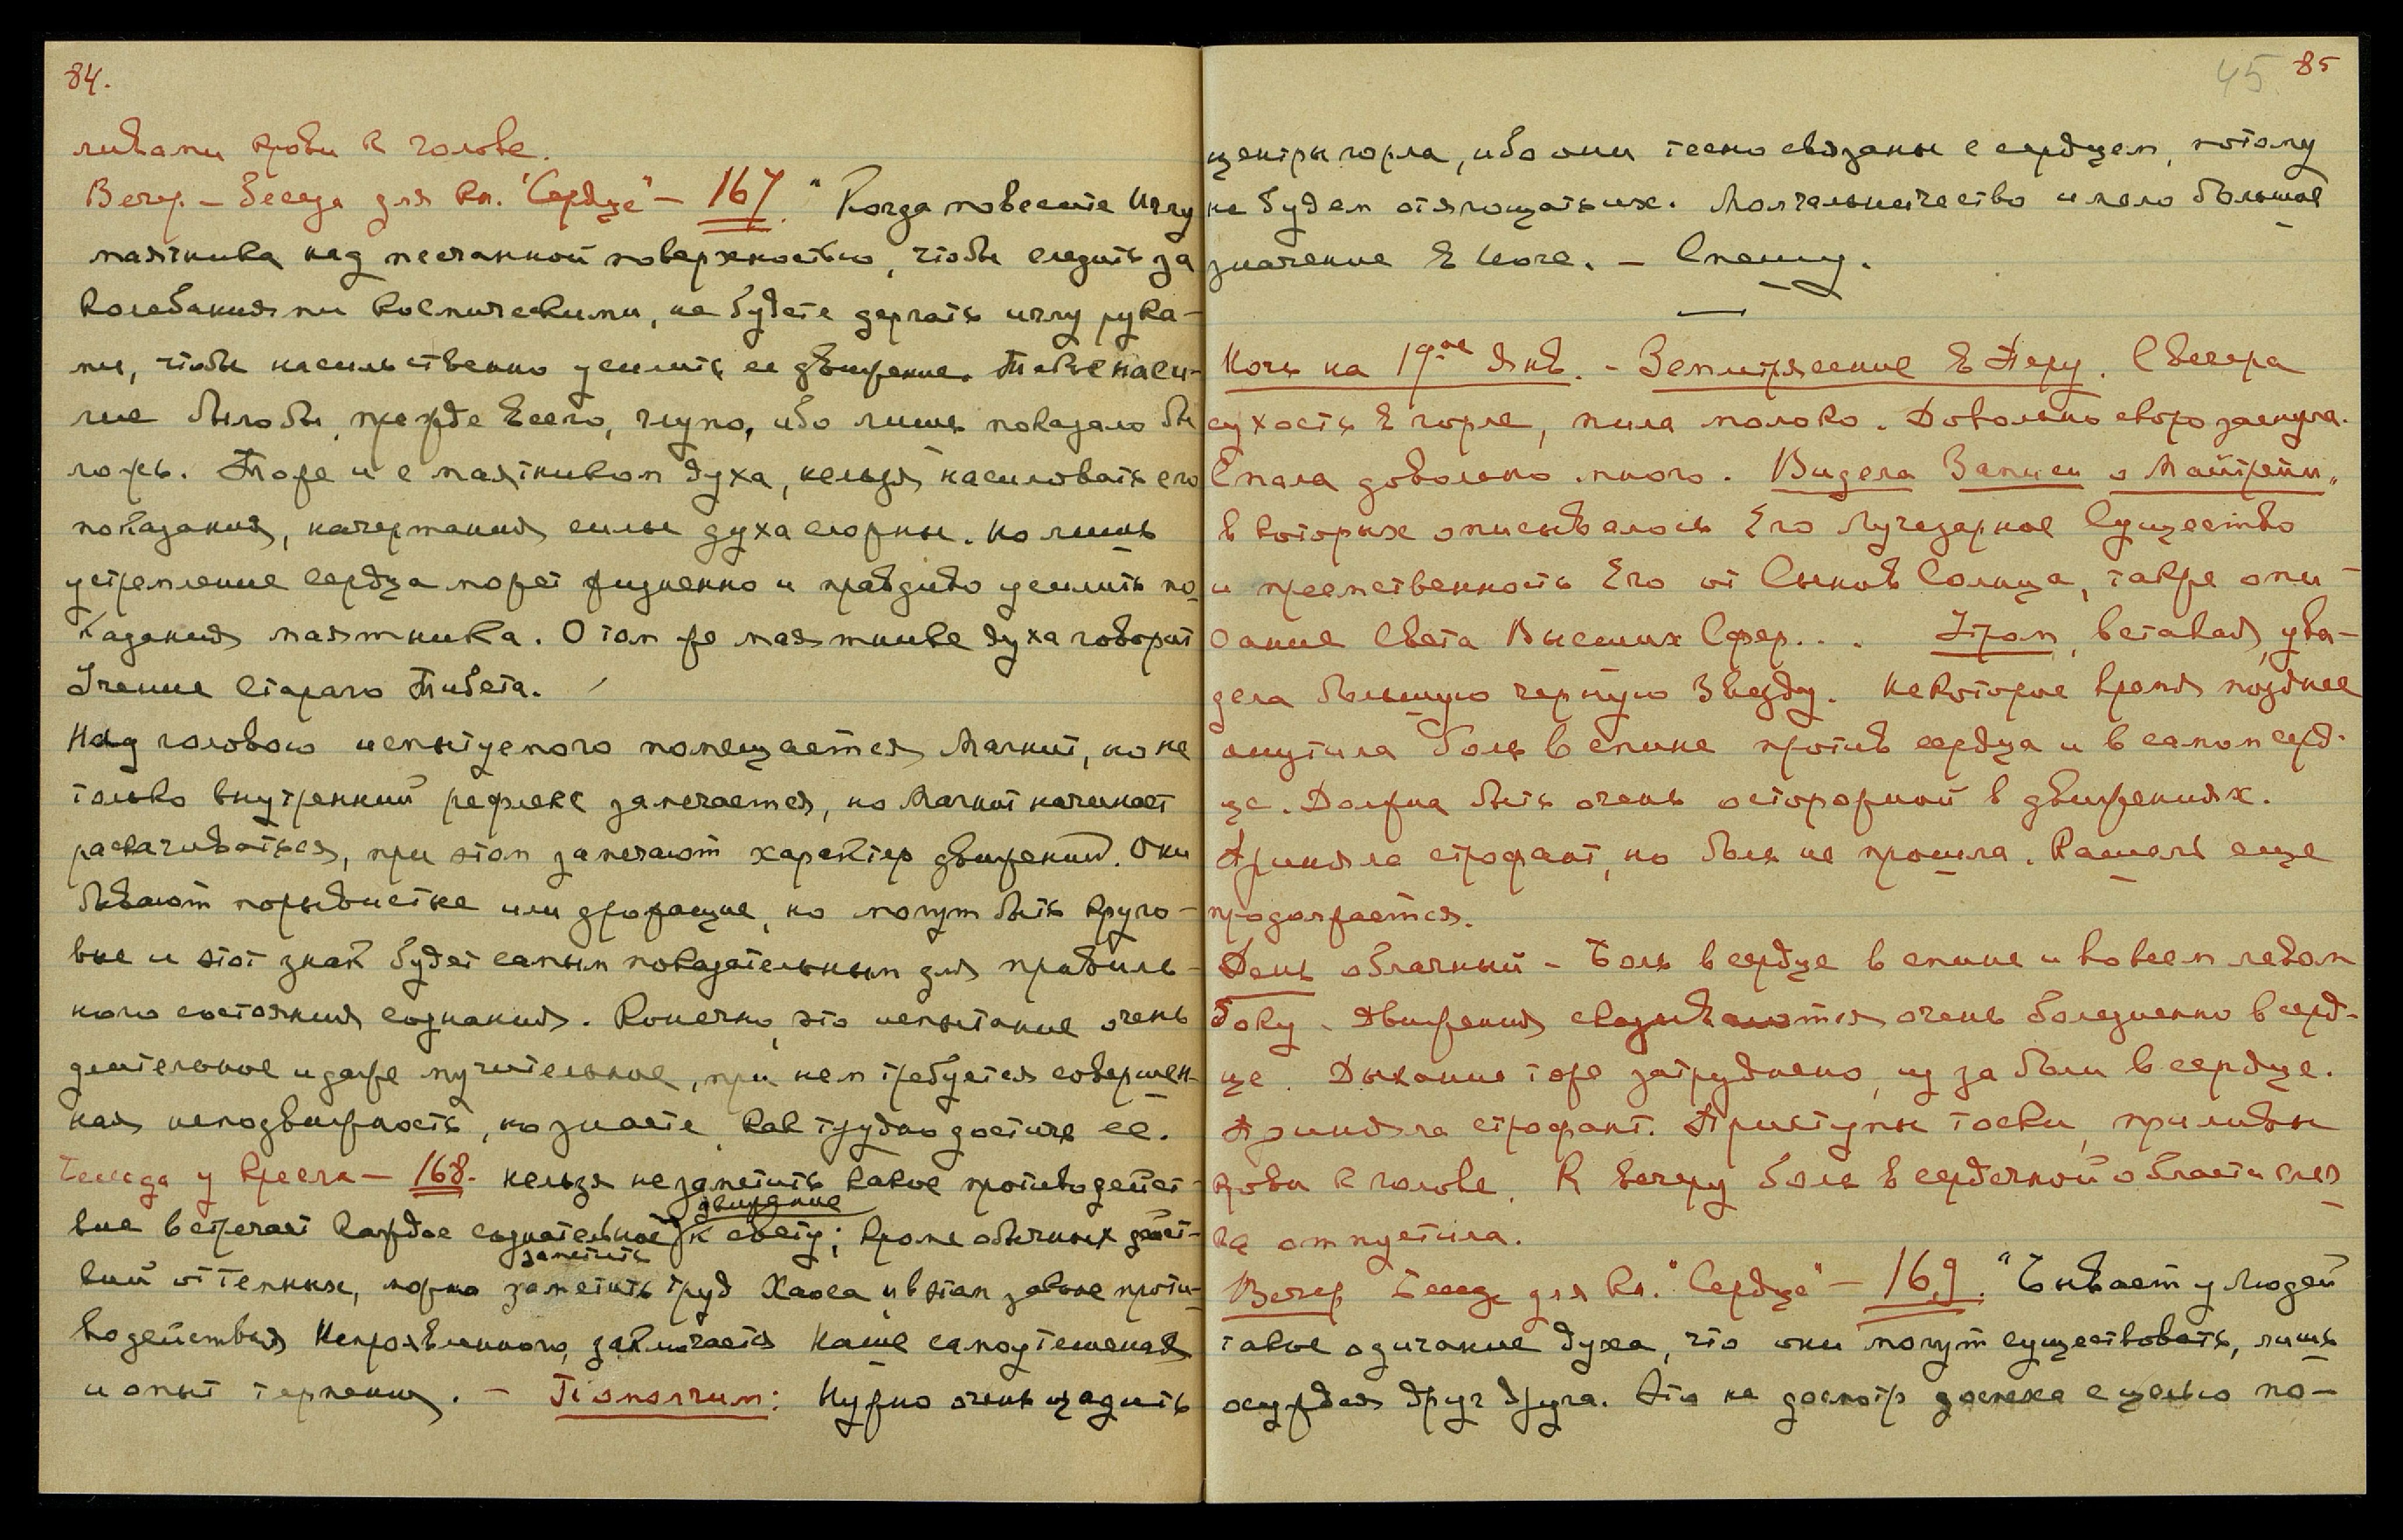 84.
ливами крови к голове.
Вечер – Беседа для кн. "Сердце" – 167. "Когда повесите иглу
маятника над песчанной поверхностью, чтобы следить за
колебаниями космическими, не будете дергать иглу рука-
ми, чтобы насильственно усилить ее движение. Такое наси-
лие было бы, прежде всего, глупо, ибо лишь показало бы
ложь. Тоже и с маятником духа, нельзя насиловать его
показания, начертания силы духа сложны. Но лишь
устремление сердца может жизненно и правдиво усилить по-
казания маятника. О том же маятнике духа говорит
Учение Старого Тибета.
Над головою испытуемого помещается Магнит, но не
только внутренний рефлекс замечается, но Магнит начинает
раскачиваться, при этом замечают характер движений. Они
бывают порывистые или дрожащие, но могут быть круго-
вые и этот знак будет самым показательным для правиль-
ного состояния сознания. Конечно, это испытание очень
длительное и даже мучительное, при нем требуется совершен-
ная неподвижность, но знаете, как трудно достичь ее.
Беседа у кресла – 168. Нельзя не заметить какое противодейст-
движение
вие встречает каждое сознательное к свету; кроме обычных дейст-
заметить
вий от Темных, можно заметить труд Хаоса и в этом законе проти-
водействия Непроявленного, заключается Наше самоутешение
и опыт терпения. – Помолчим: Нужно очень щадить
45. 85
центры горла, ибо они тесно связаны с сердцем, потому
не будем отягощать их. Молчальничество имело большое
значение в Йоге. – Спешу.
—
Ночь на 19ое Янв. – Землетрясение в Перу. С вечера
сухость в горле, пила молоко. Довольно скоро заснула.
Спала довольно много. Видела Записи о Майтрейи,,
в которых описывалось Его Лучезарное Существо
и преемственность Его от Сынов Солнца, также опи-
сание Света Высших Сфер... Утром, вставая, уви-
дела большую черную Звезду. Некоторое время позднее
ощутила боль в спине против сердца и в самом серд-
це. Должна быть очень осторожной в движениях.
Приняла строфант, но боль не прошла. Кашель еще
продолжается.
День облачный – Боль в сердце в спине и во всем левом
боку. Движения сказываются очень болезненно в серд-
це. Дыхание тоже затруднено, из за боли в сердце.
Приняла строфант. Приступы тоски, приливы
крови к голове. К вечеру боль в сердечной области слег-
ка отпустила.
Вечер Беседа для кн. "Сердце" – 169. "Бывает у людей
такое одичание духа, что они могут существовать, лишь
осуждая друг друга. Это не досмотр доспеха с целью по-